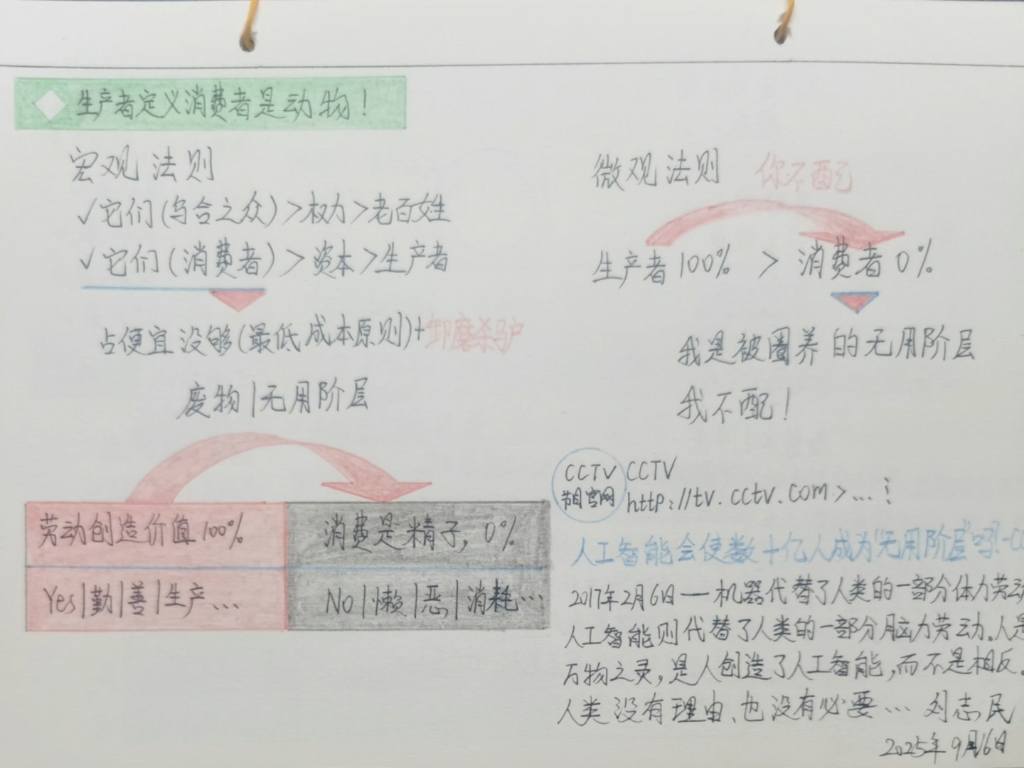 生产者定义消费者是动物！
宏观法则
✓它们(乌合之众)>权力>老百姓
✓它们(消费者)>资本>生产者
占便宜没够(最低成本原则)+卸磨杀驴
废物|无用阶层
劳动创造价值100%
消费是精子，0%
Yes|勤|善|生产...
No|懒|恶|消耗...
微观法则
你不配
生产者100% > 消费者0%
我是被圈养的无用阶层
我不配！
CCTV
节目官网
CCTV
http://tv.cctv.com>...⋮
人工智能会使数十亿人成为"无用阶层"吗!-CC
2017年2月6日一机器代替了人类的一部分体力劳动
人工智能则代替了人类的一部分脑力劳动.人是
万物之灵,是人创造了人工智能,而不是相反.
人类没有理由、也没有必要... 刘志民
2025年9月16日